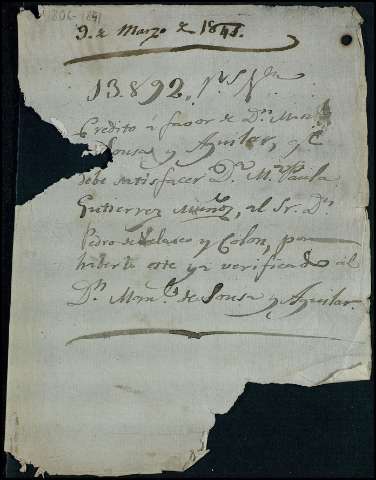 806-1841
9. de Marzo de 1841.
13.892. rs. Vn
Credito á favor de Dn. Man
de Sousa y Aguilar, y
debe satisfacer Dª. Mª. Paula
Gutierrez Muñoz, al Sr. Dn.
Pedro de Velasco y Colon, por
haberlo este ya verificado al
Dn. Man.l de Sousa y Aguilar.